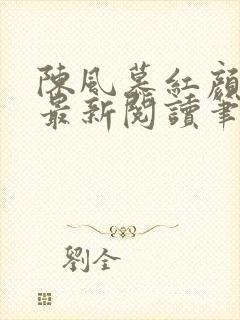 陳風慕紅顏
最新閱讀筆
劉全